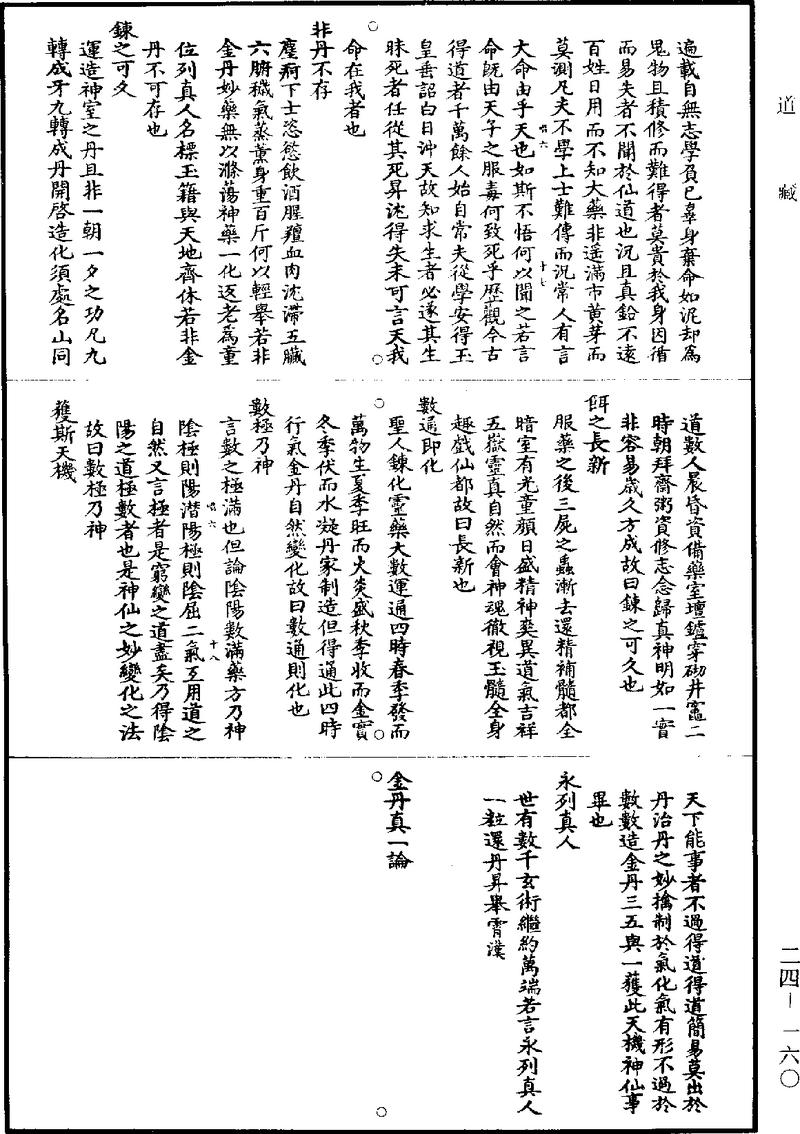 道藏
遍載自無志學負己辜身棄命如泥却為
鬼物且積修而難得者莫貴於我身因循
而易失者不聞於仙道也況且真鉛不遠
百姓日用而不知大藥非遙滿市黃芽而
莫測凡夫不學上士難傳而況常人有言
大命由乎天也如斯不悟何以聞之若言
命既由天子之服毒何致死乎歷觀今古
得道者千萬餘人始自常夫從學安得玉
皇垂詔白日沖天故知求生者必遂其生
昧死者任從其死昇沈得失未可言天我
命在我者也
非丹不存
塵痾下士恣慾飲酒腥羶血肉沈滯五臟
六腑穢氣蒸薰身重百斤何以輕舉若非
金丹妙藥無以滌蕩神藥一化返老爲童
位列真人名標玉籍與天地齊休若非金
丹不可存也
鍊之可久
運造神室之丹且非一朝一夕之功凡九
轉成牙九轉成丹開啓造化須處名山同
道數人晨昏資備藥室壇鑪穿砌井竈二
時朝拜齋粥資修志念歸真神明如一實
非容易歲久方成故曰鍊之可久也
餌之長新
服藥之後三屍之蟲漸去還精補髓都全
暗室有光童顏日盛精神爽異道氣吉祥
五嶽靈真自然而會神魂徹視玉髓全身
趣戲仙都故曰長新也
數通即化
聖人鍊化靈藥大數運通四時春季發而
萬物生夏季旺而火炎盛秋季收而金實
冬季伏而水凝丹家制造但得通此四時
行氣金丹自然變化故曰數通則化也
數極乃神
言數之極滿也但論陰陽數滿藥方乃神
陰極則陽潛陽極則陰屈二氣互用道之
自然又言極者是窮變之道盡矣乃得陰
陽之道極數者也是神仙之妙變化之法
故曰數極乃神
獲斯天機
天下能事者不過得道得道簡易莫出於
丹治丹之妙擒制於氣化氣有形不過於
數數造金丹三五與一獲此天機神仙事
畢也
永列真人
世有數千玄術繼約萬端若言永列真人
一粒還丹昇舉霄漢
金丹真一論
二四－一六〇